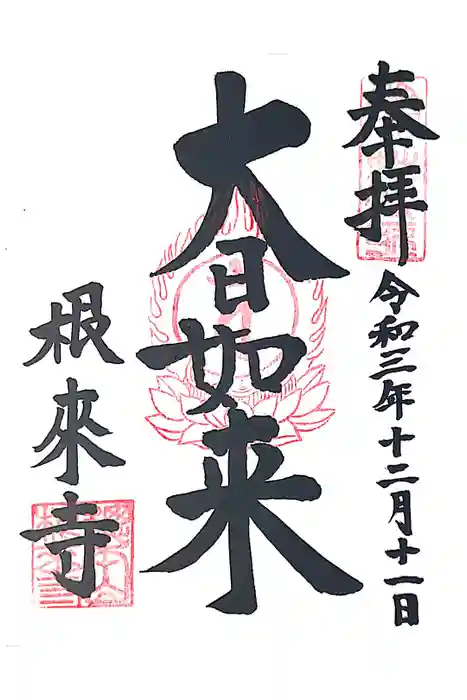 奉拝
令和三年十二月十一日
大日如来
根来寺